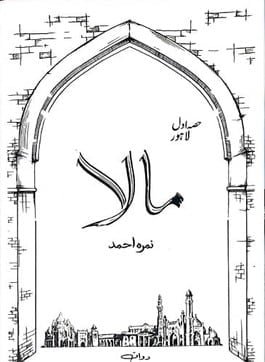 حصہ اول
لاہور
مالا
نمرہ احمد